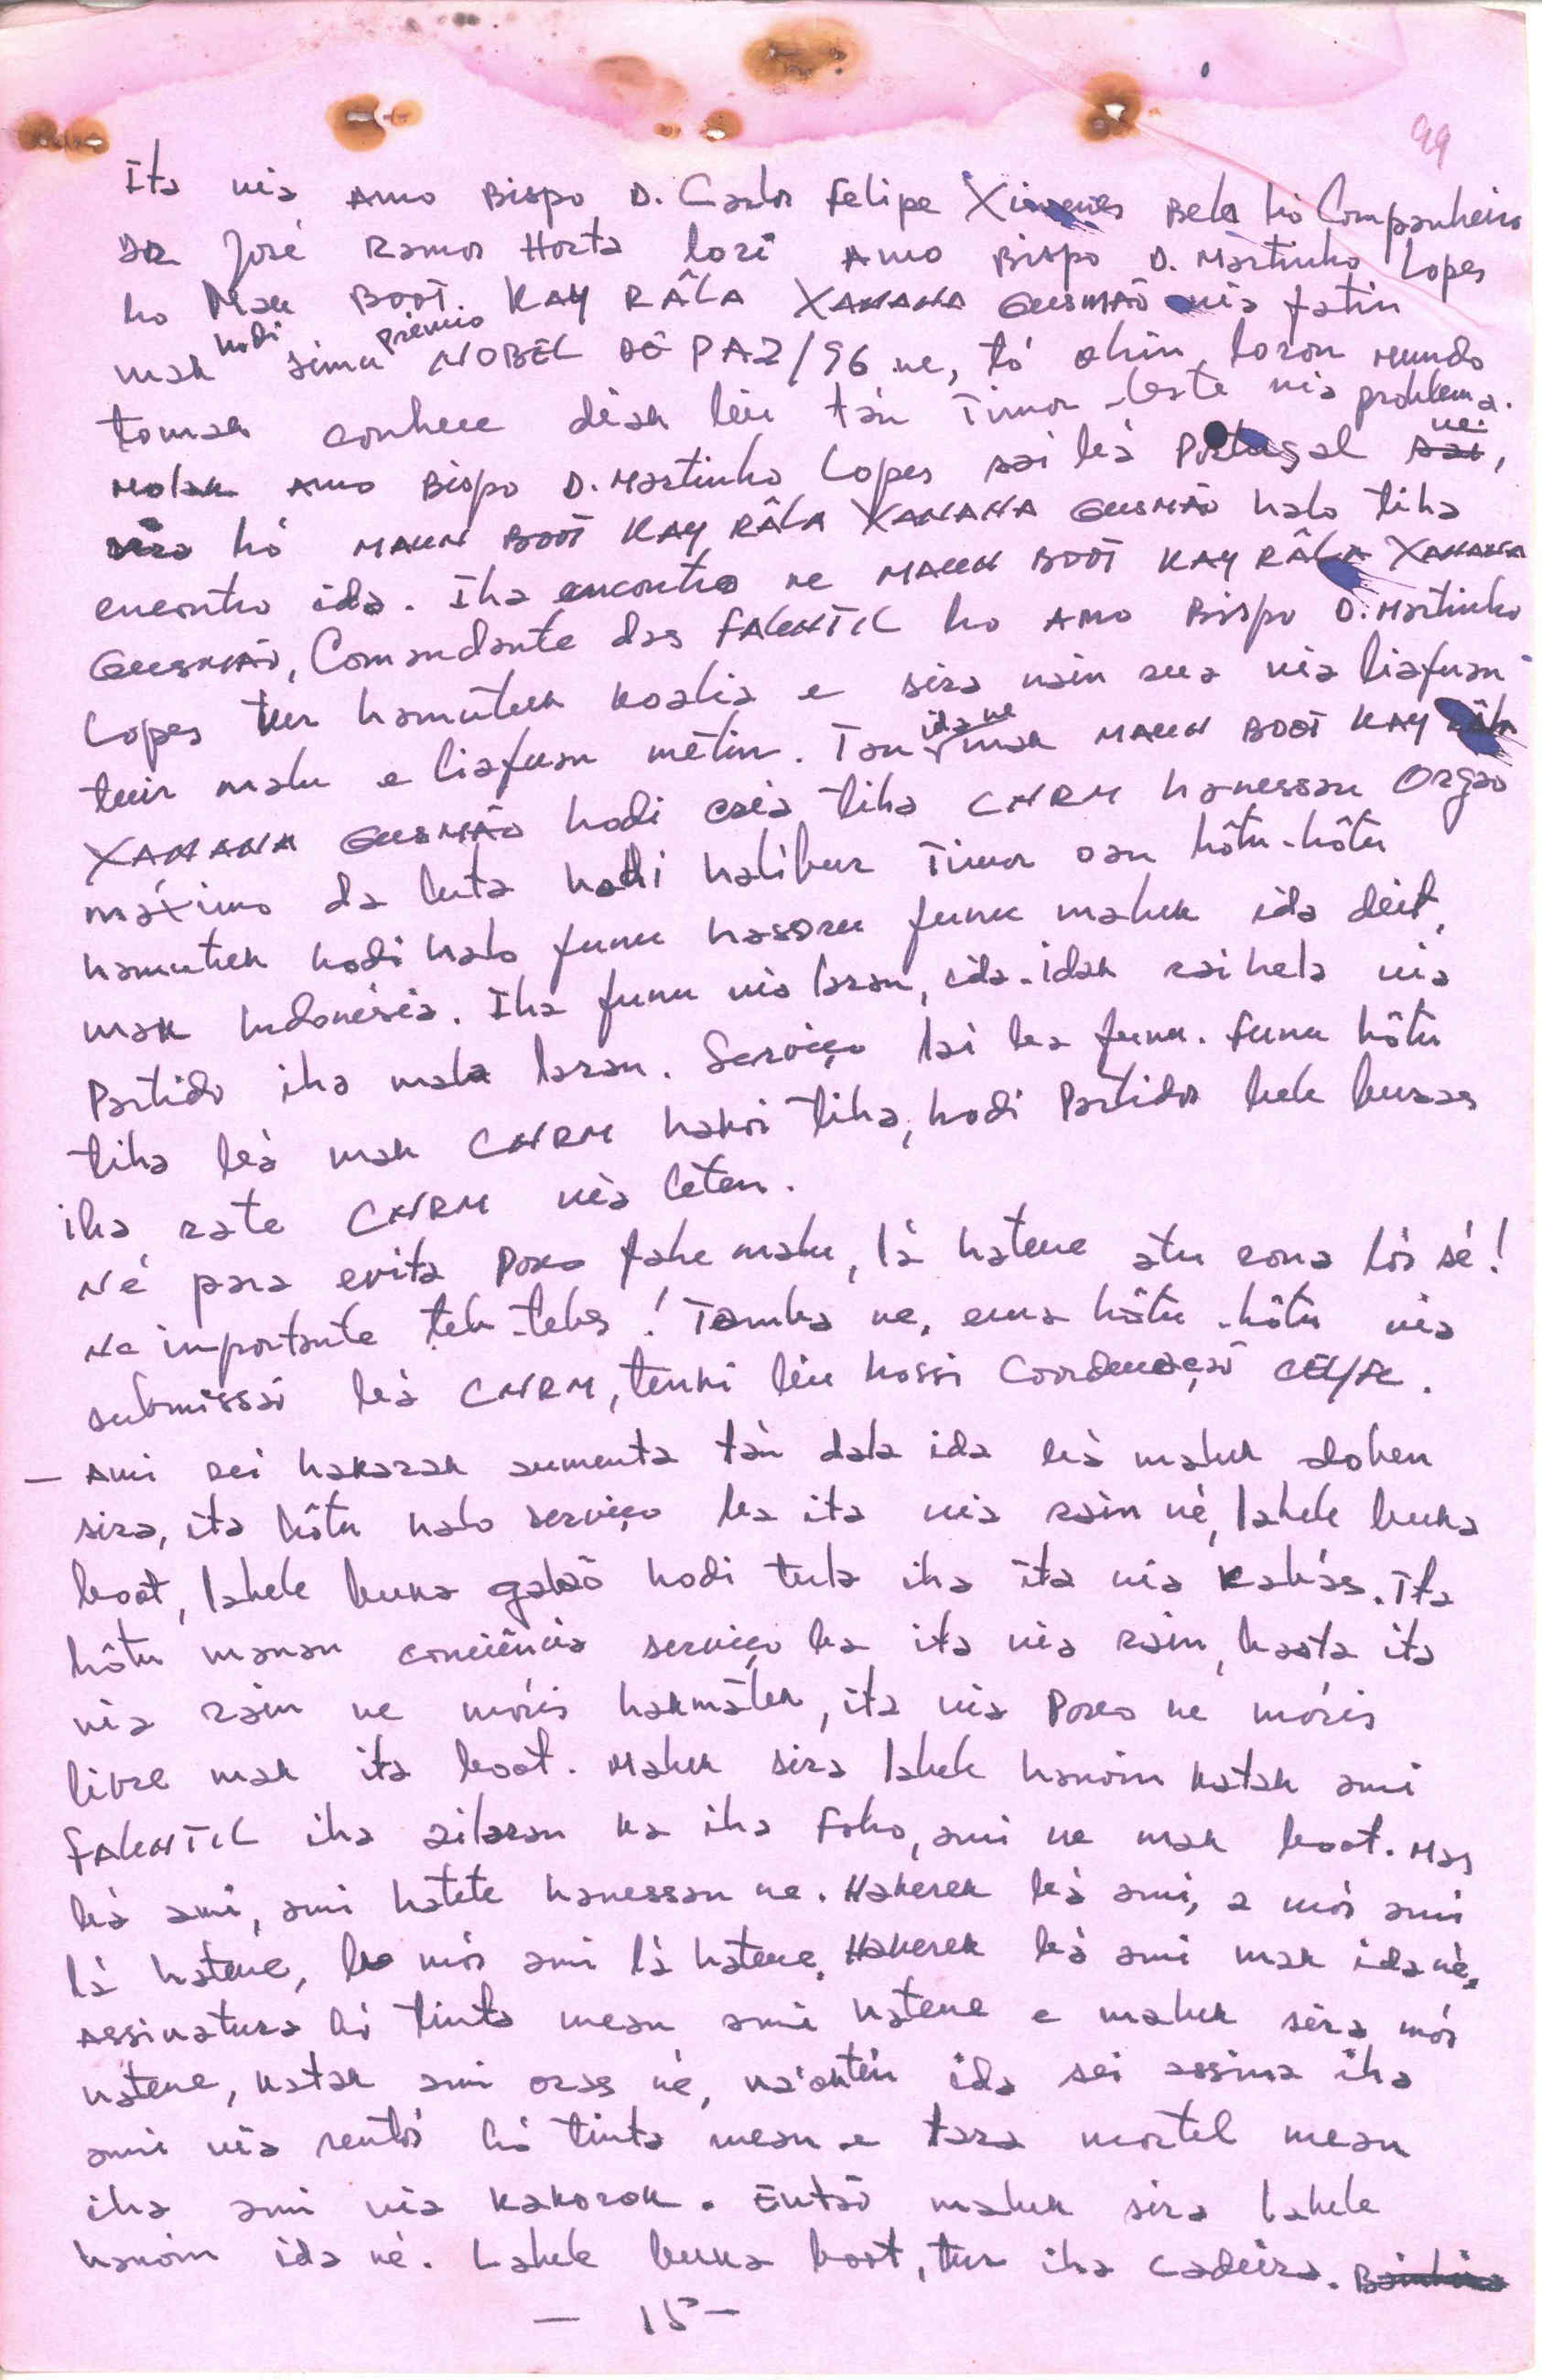 99
Ita nia Amo Bispo D. Carlos Felipe Ximenes Belo hó Companheiro
DR José Ramos Horta lori Amo Bispo D. Martinho Lopes
ho Mau BOOT. KAY RÂLA XANANA GUSMÃO nia fatin
mak hodi simu premio NOBEL DE PAZ/96 ne, tó ohin loron mundo
tomak conhece diak liu tán Timor-Leste nia problema.
Molok Amo Bispo D. Martinho Lopes sai bá Portugal ne,
hó MAUN BOOT KAY RÂLA XANANA GUSMÃO halo tiha
encontro ida. Iha encontro ne MAUN BOOT KAY RÂLA XANANA
GUSMÃO, Comandante das FALINTIL ho Amo Bispo D. Martinho
Lopes tur hamutuk koalia e sira nain rua nia liafuan
tuir malu e liafuan metin. Tan ida ne mak MAUN BOOT KAY RÂLA
XANANA GUSMÃO hodi cria tiha CNRM hanessan Orgão
máximo da luta hodi halibur Timor oan hôtu-hôtu
hamutuk hodi halo funu hassoru funu maluk ida deit,
mak Indonésia. Iha funu nia laran, ida-idak rai hela nia
Partido iha mala laran. Serviço lai ba funu. Funu hôtu
tiha bá mak CNRM hakoi tiha, hodi Partidos bele buras
iha rate CNRM nia leten.
Né para evita Povo fahe malu, lá hatene atu rona lós sé!
Ne importante teb-tebes! Tamba ne, ema hôtu-hôtu nia
submissão bá CNRM, tenki liu hossi Coordenação CE/FC.
— Ami sei hakarak aumenta tán dala ida bá maluk doben
sira, ita hôtu halo serviço ba ita nia rain né, labele buka
boot, labele buka galão hodi tula iha ita nia kabás. Ita
hôtu manan conciência serviço ba ita nia rain, basta ita
nia rain ne móris hakmátek, ita nia Povo ne móris
livre mak ita boot. Maluk sira labele hanoin katak ami
FALINTIL iha ailaran ka iha foho, ami ne mak boot. Mas
bá ami, ami hatete hanessan ne. Hakerek bá ami, a mós ami
lá hatene, b mós ami lá hatene. Hakerek bá ami mak ida né,
Assinatura hó tinta mean ami hatene e maluk sira mós
hatene, katak ami oras né, na'ok tén ida sei assina iha
ami nia rentós hó tinta mean e tara mortel mean
iha ami nia kakorok. Então maluk sira labele
hanoin ida né. Labele buka boot, tur iha cadeira.
— 15 —